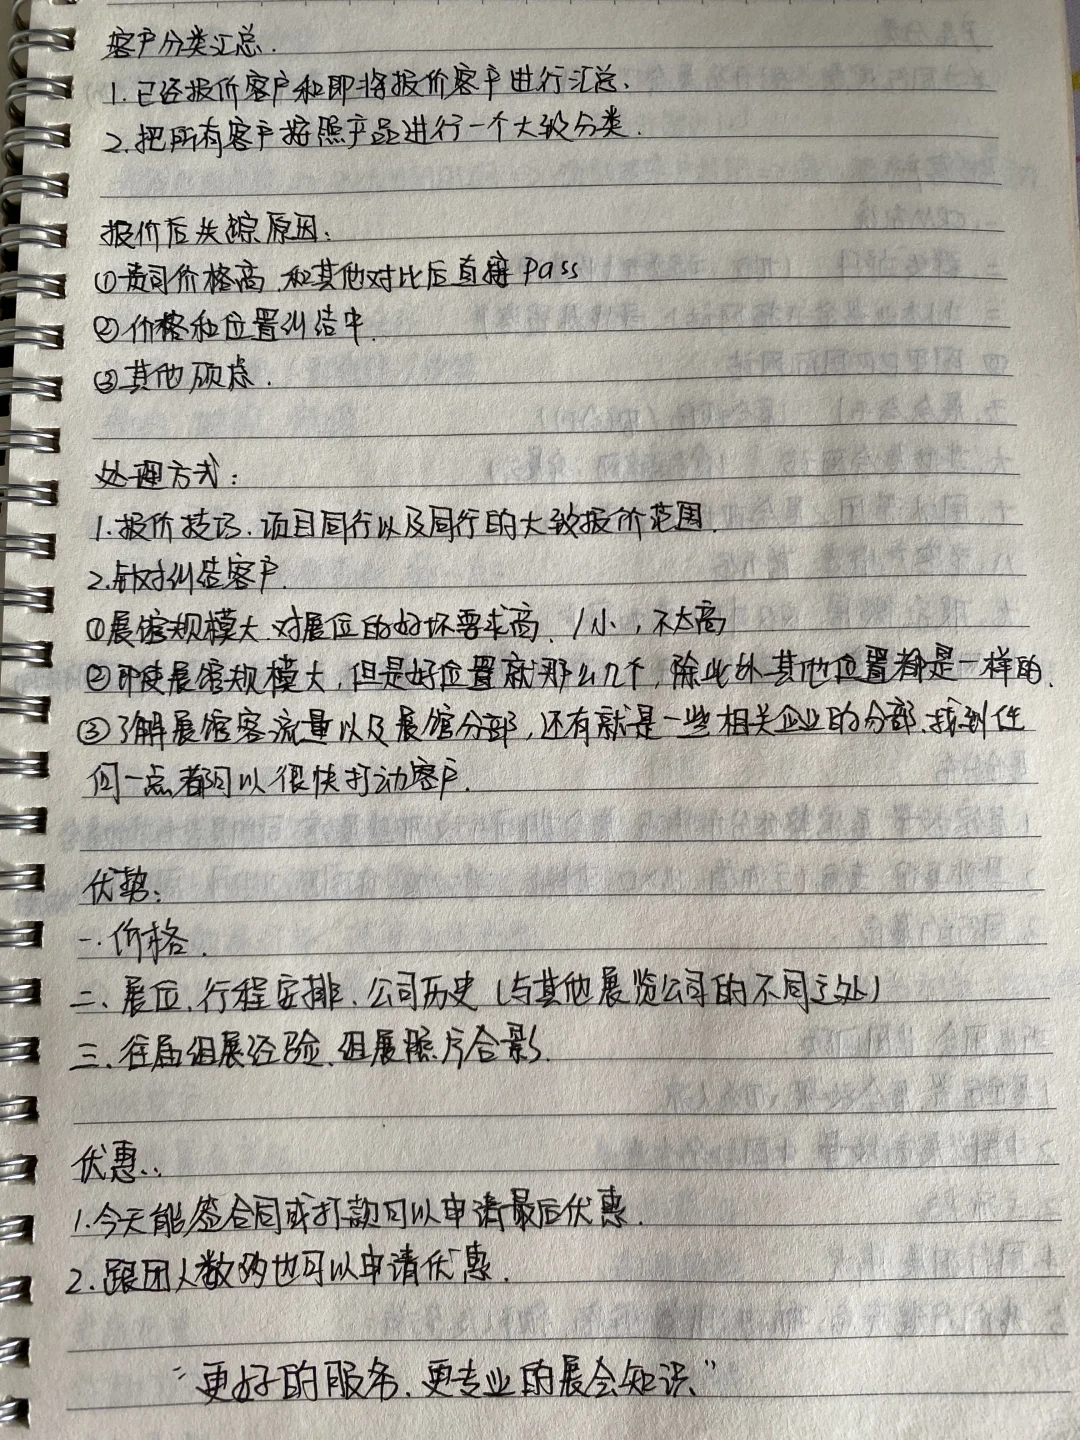 客户分类汇总.
1.已经报价客户和即将报价客户进行汇总、
2.把所有客户按照产品进行一个大致分类.
报价后失踪原因:
①贵司价格高.和其他对比后直接pass
②价格和位置纠结中.
③其他顾虑.
处理方式:
1.报价技巧.项目同行以及同行的大致报价范围.
2.针对纠结客户.
①展馆规模大.对展位的好坏要求高、/小,不太高
②即使展馆规模大,但是好位置就那么几个,除此外其他位置都是一样的.
③了解展馆客流量以及展馆分部,还有就是一些相关企业的分部.找到任
何一点都可以很快打动客户.
优势:
一.价格.
二、展位.行程安排、公司历史(与其他展览公司的不同之处)
三、往届组展经验、组展照片合影.
优惠..
1.今天能签合同或打款可以申请最后优惠.
2.跟团人数够也可以申请优惠.
"更好的服务.更专业的展会知识"